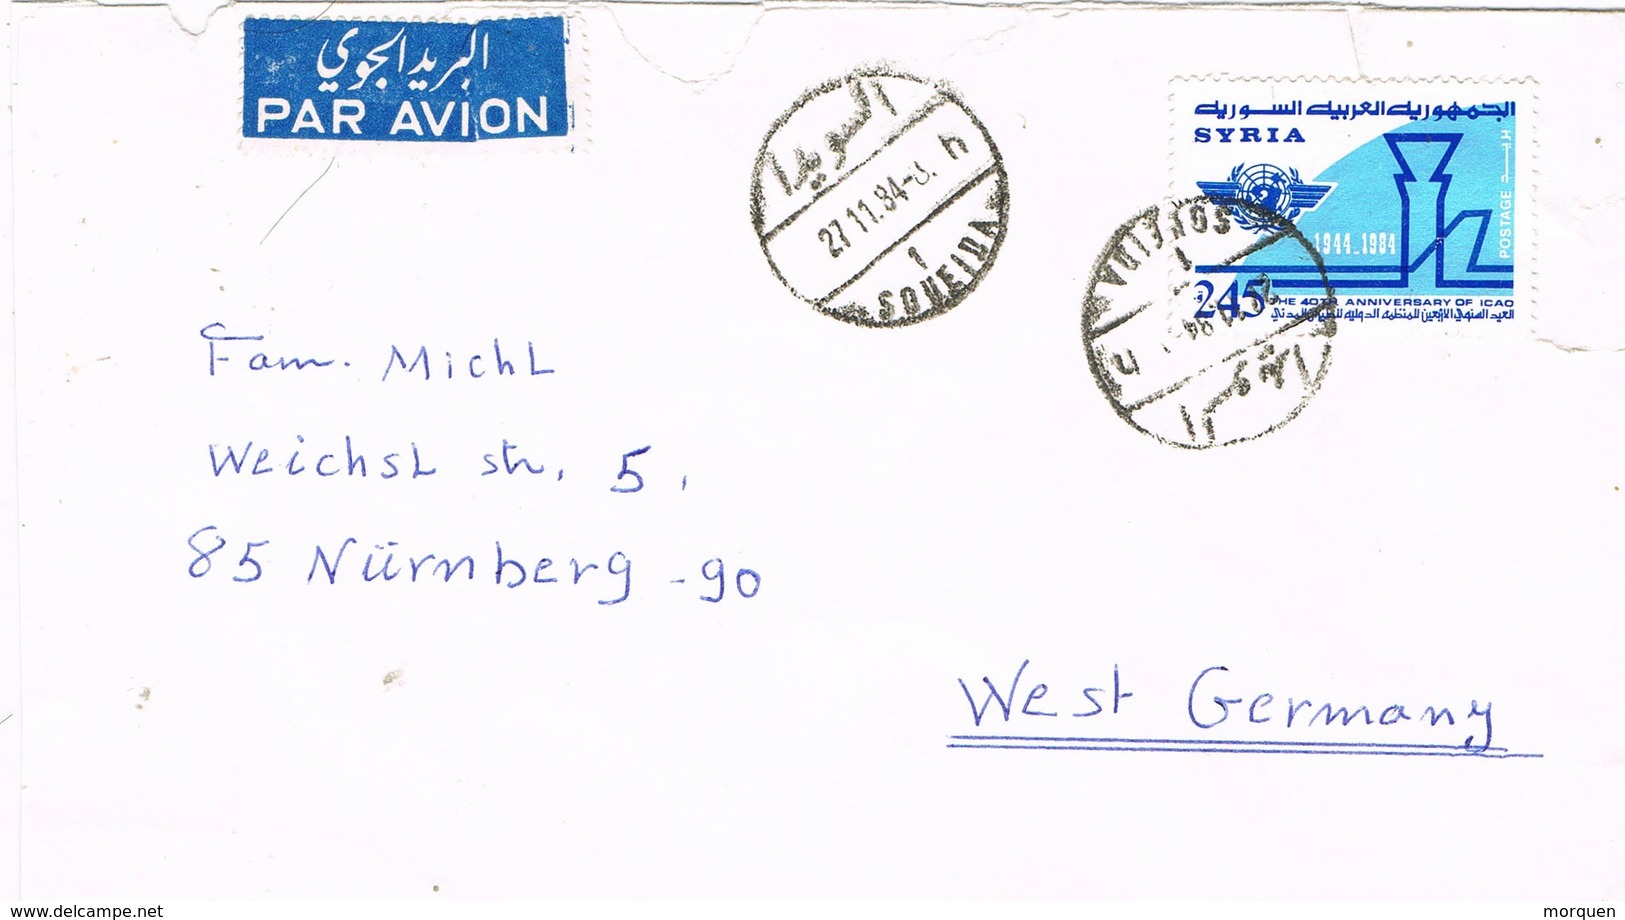 البريد الجوي
PAR AVION
السويدا
27.11.84
1
SOUEIDA
الجمهورية العربية السورية
SYRIA
بريد
POSTAGE
1944_1984
245
THE 40TH ANNIVERSARY OF ICAO
العيد السنوي الاربعين للمنظمة الدولية للطيران المدني
SOUEIDA
1
السويدا
Fam. Michl
Weichsl str. 5,
85 Nürnberg -90
West Germany
www.delcampe.net
morquen